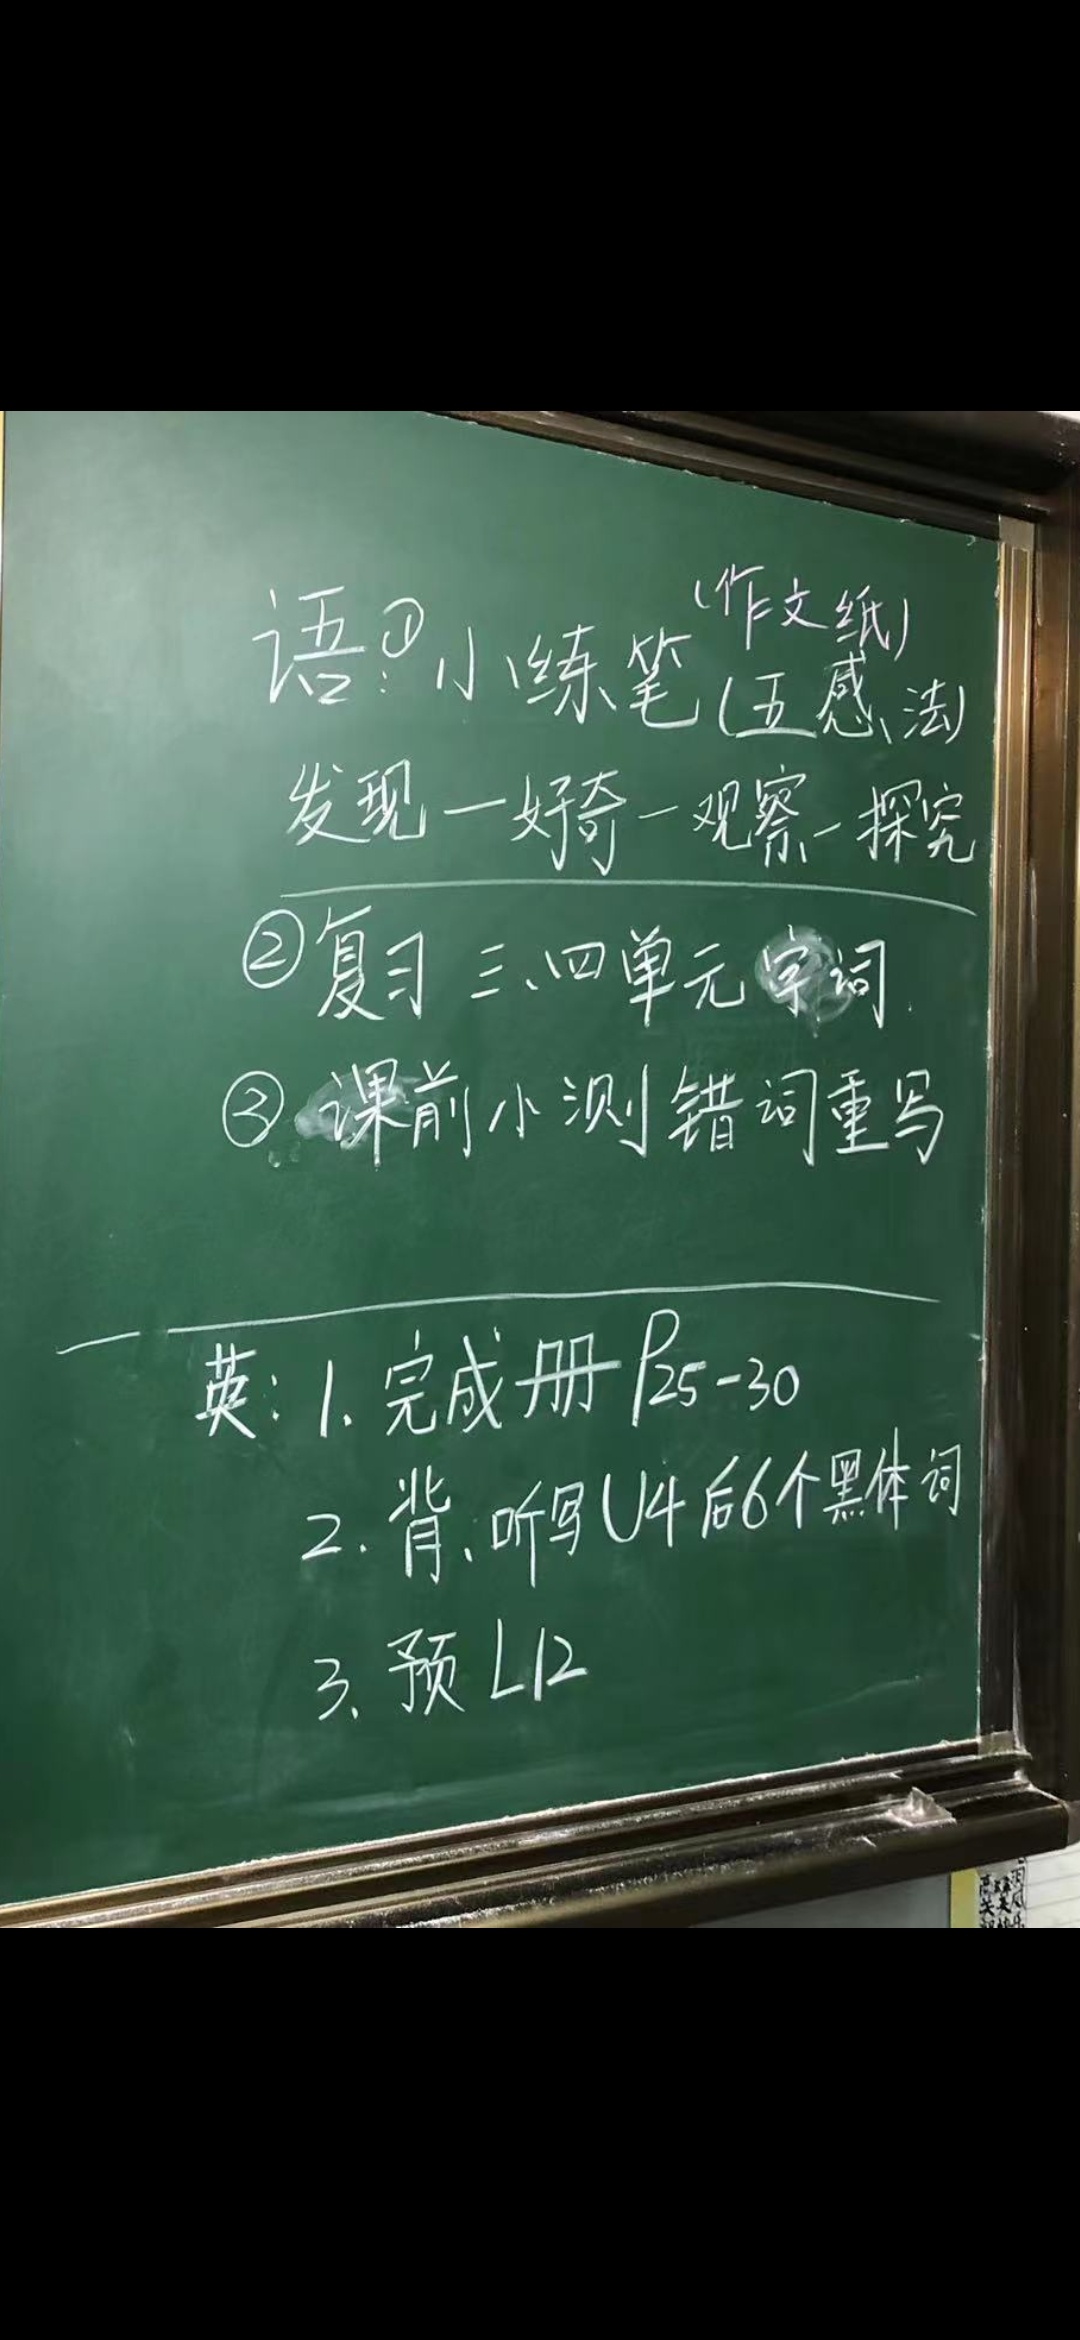 (作文纸)
语:①小练笔(五感法)
发现一好奇一观察一探究
②复习三、四单元字词.
③课前小测错词重写
英:1.完成册P25-30
2.背、听写U4后6个黑体词
3.预L12